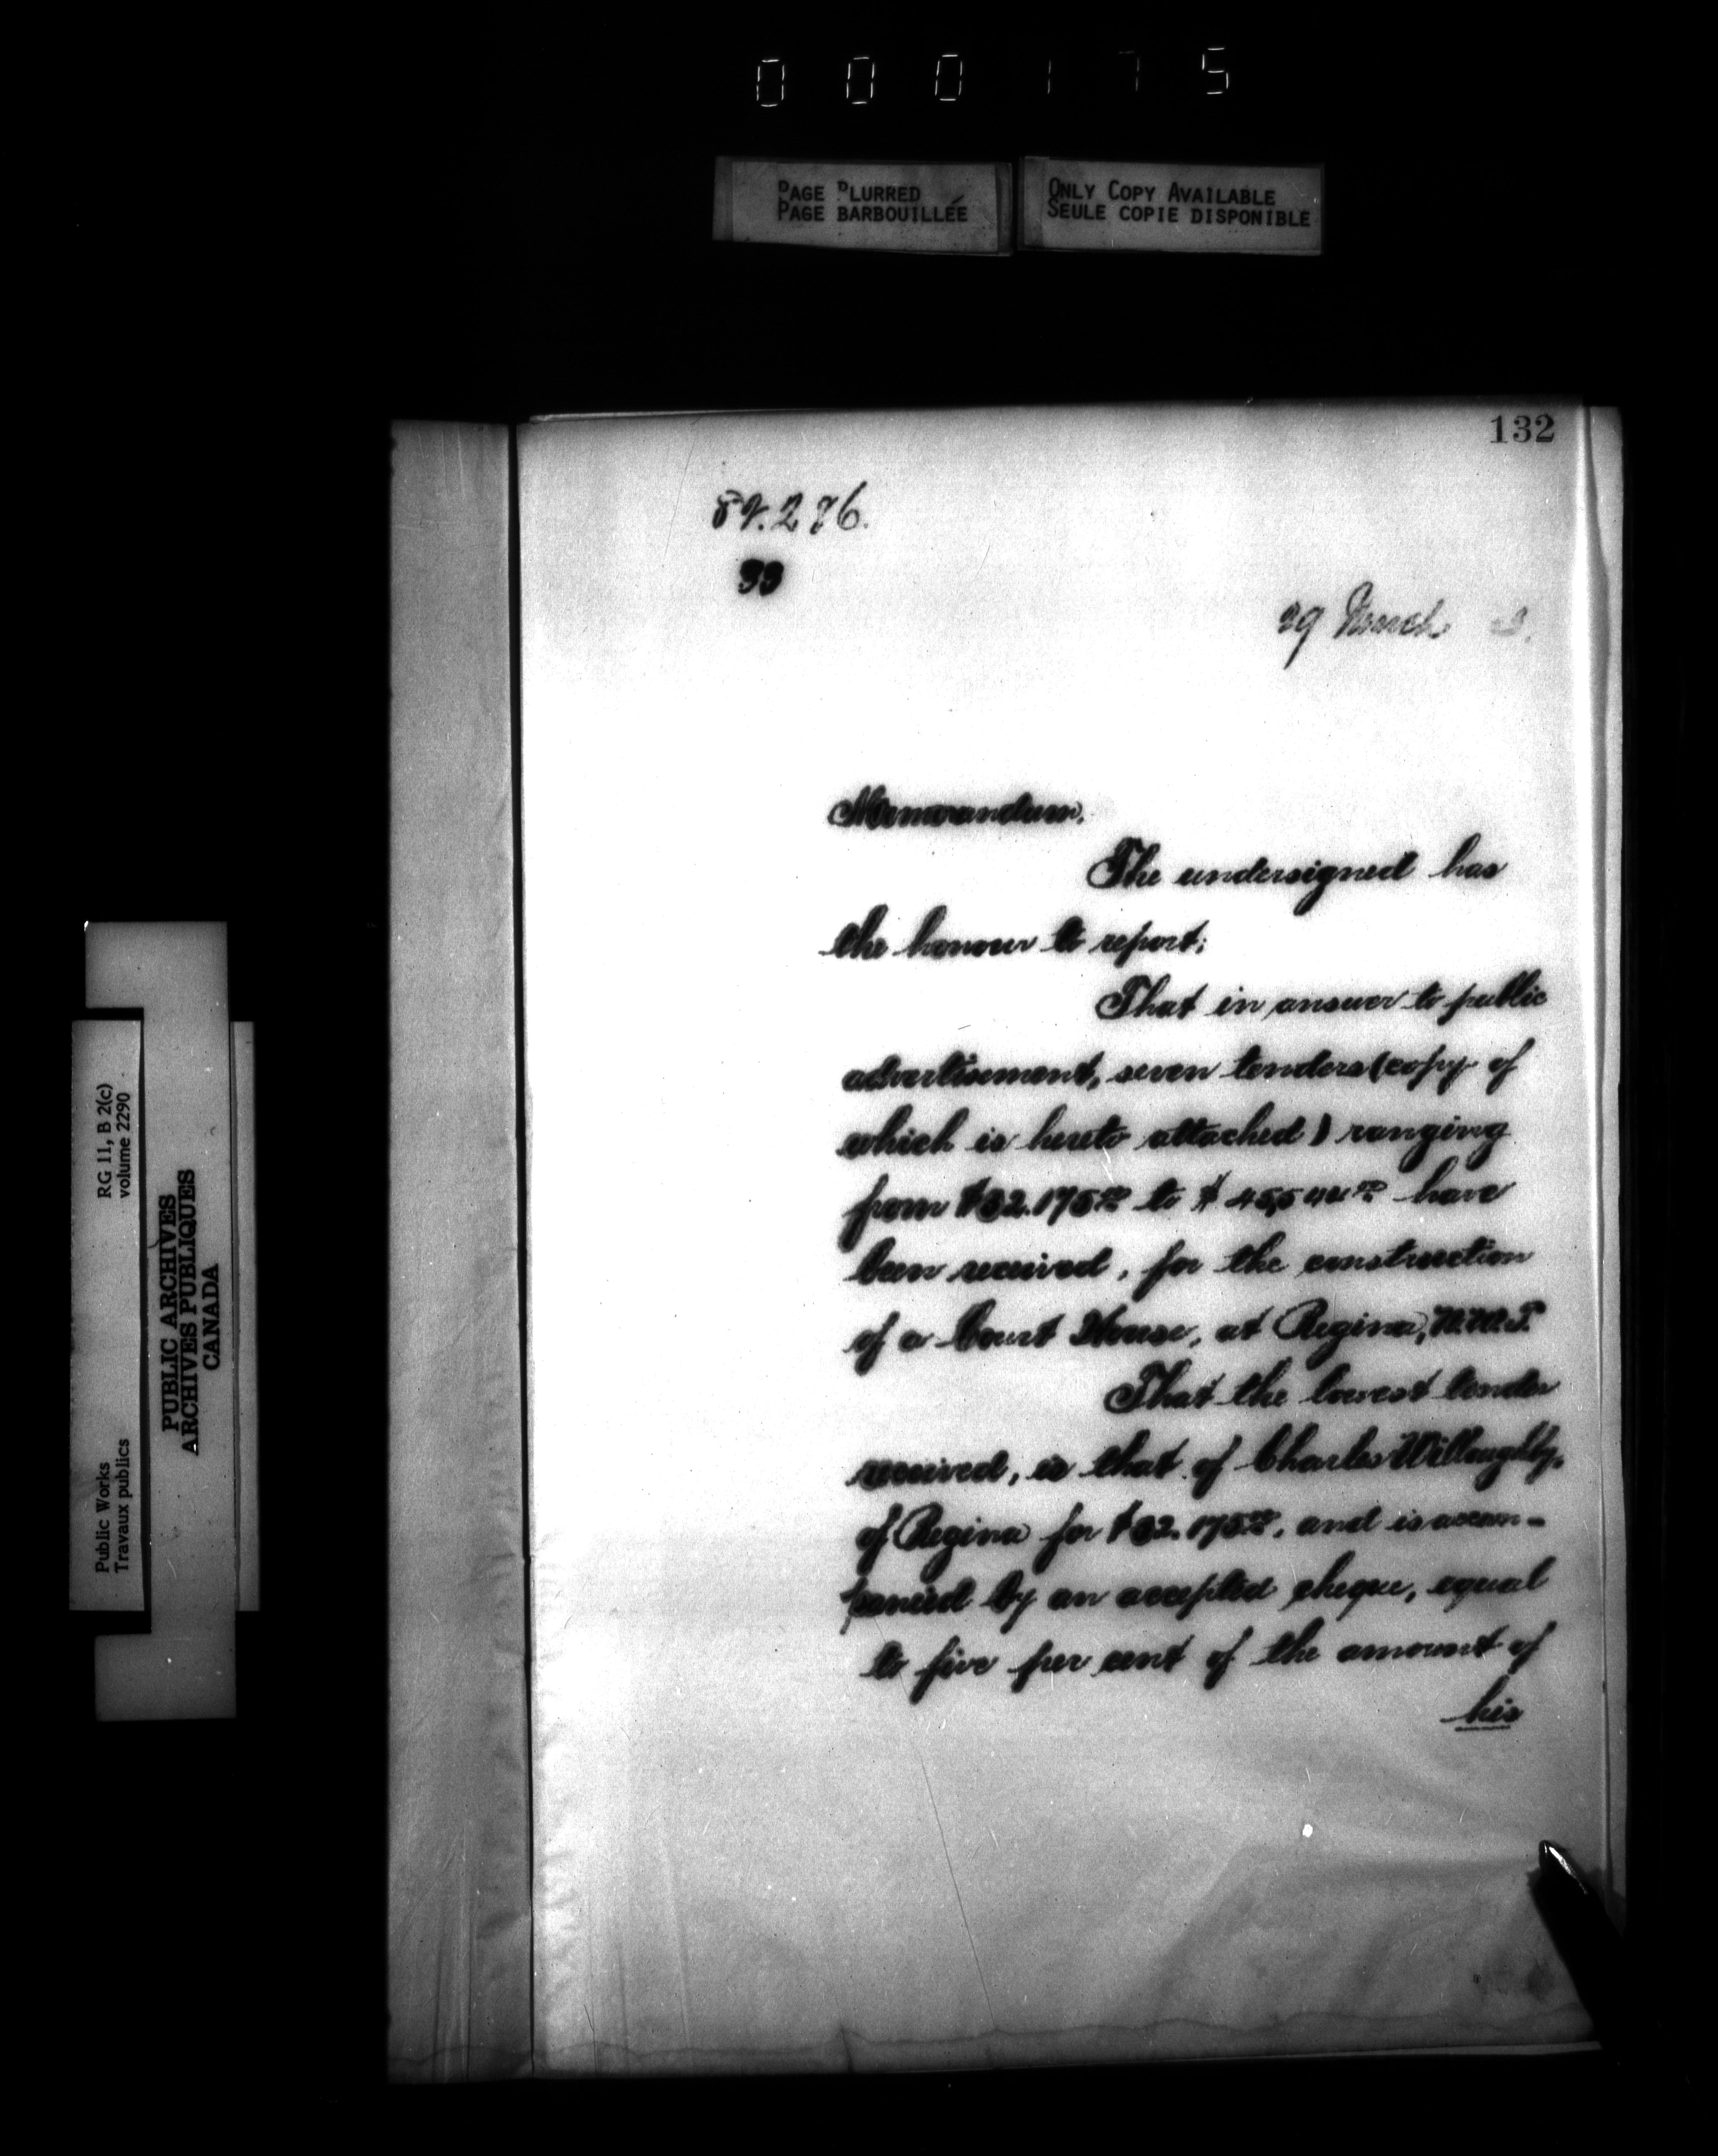 000175
PAGE BLURRED
PAGE BARBOUILLÉE
ONLY COPY AVAILABLE
SEULE COPIE DISPONIBLE
132
29 March
Memorandum.
The undersigned has
the honour to report;
That in answer to public
advertisement, seven tenders (copy of
which is hereto attached) ranging
from $32.175.00 to have
been received, for the construction
of a Court House, at Regina, N.W.T.
That the lowest tender
received, is that of Charles Willoughby,
of Regina for $32.175.00, and is accom-
panied by an accepted cheque, equal
to five per cent of the amount of
his
Public Works
Travaux publics
RG 11, B 2(c)
volume 2290
PUBLIC ARCHIVES
ARCHIVES PUBLIQUES
CANADA